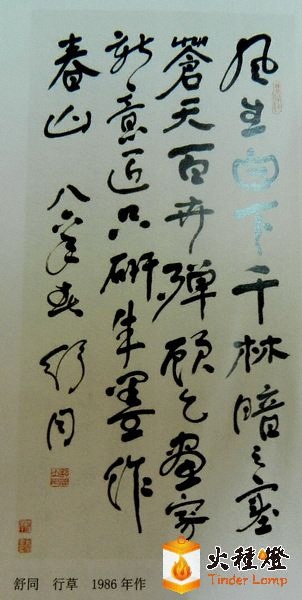 風生白下千林暗霧塞
蒼天百卉殫願乞畫家
新意匠只研朱墨作
春山 八六年春 舒同
舒同 行草 1986年作
火種燈
Tinder Lamp